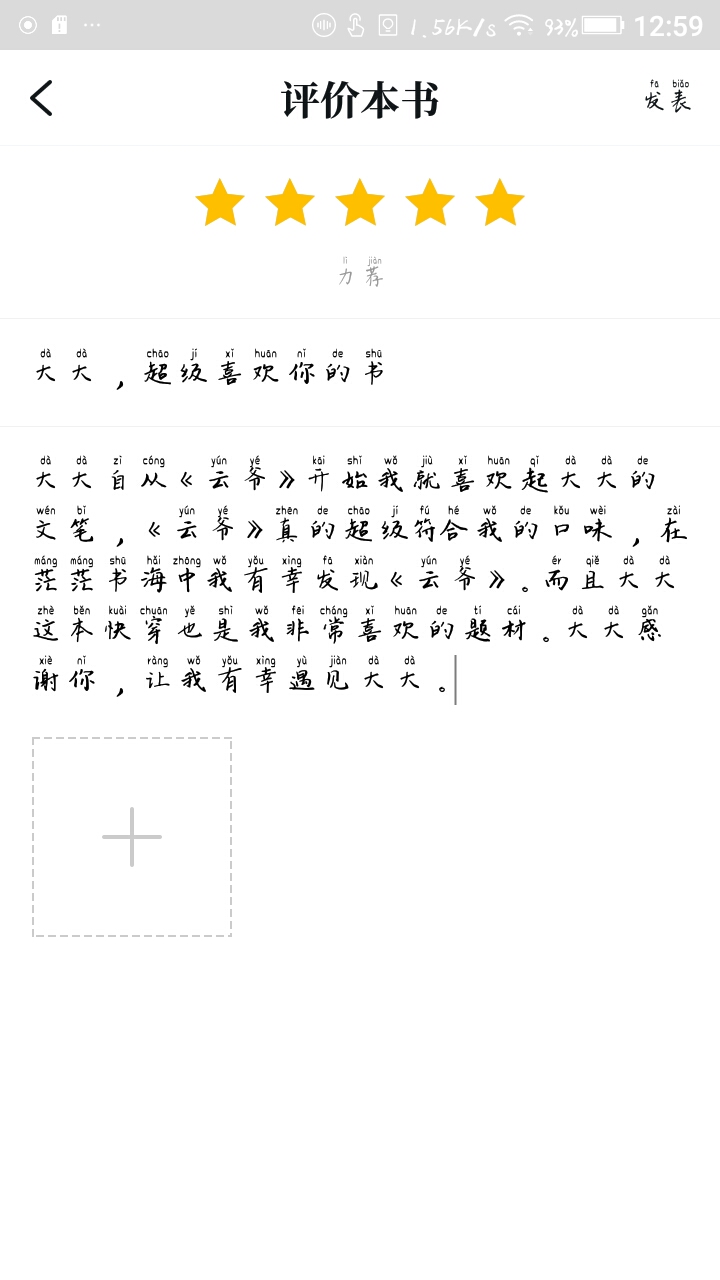 1.56K/s 93% 12:59
评价本书
fā biǎo
发表
lì jiàn
力荐
dà dà chāo jí xǐ huān nǐ de shū
大大，超级喜欢你的书
dà dà zì cóng yún yé kāi shǐ wǒ jiù xǐ huān qǐ dà dà de
大大自从《云爷》开始我就喜欢起大大的
wén bǐ yún yé zhēn de chāo jí fú hé wǒ de kǒu wèi zài
文笔，《云爷》真的超级符合我的口味，在
máng máng shū hǎi zhōng wǒ yǒu xìng fā xiàn yún yé ér qiě dà dà
茫茫书海中我有幸发现《云爷》。而且大大
zhè běn kuài chuān yě shì wǒ fēi cháng xǐ huān de tí cái dà dà gǎn
这本快穿也是我非常喜欢的题材。大大感
xiè nǐ ràng wǒ yǒu xìng yù jiàn dà dà
谢你，让我有幸遇见大大。